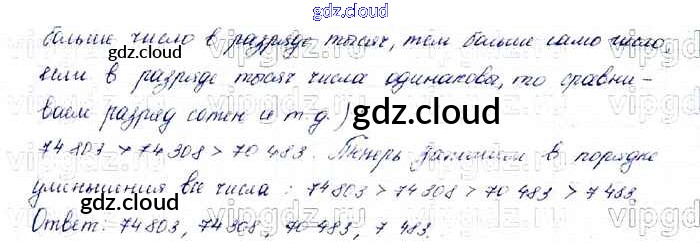 gdz.cloud
больше число в разряде тысяч, тем больше само число,
gdz.cloud
если в разряде тысяч числа одинаковы, то сравни-
ваем разряд сотен и т.д.)
gdz.cloud
74 803 > 74 308 > 70 483. Теперь запишем в порядке
уменьшения все числа : 74 803 > 74 308 > 70 483 > 7 483
Ответ: 74 803, 74 308, 70 483, 7 483.
gdz.cloud gdz.cloud